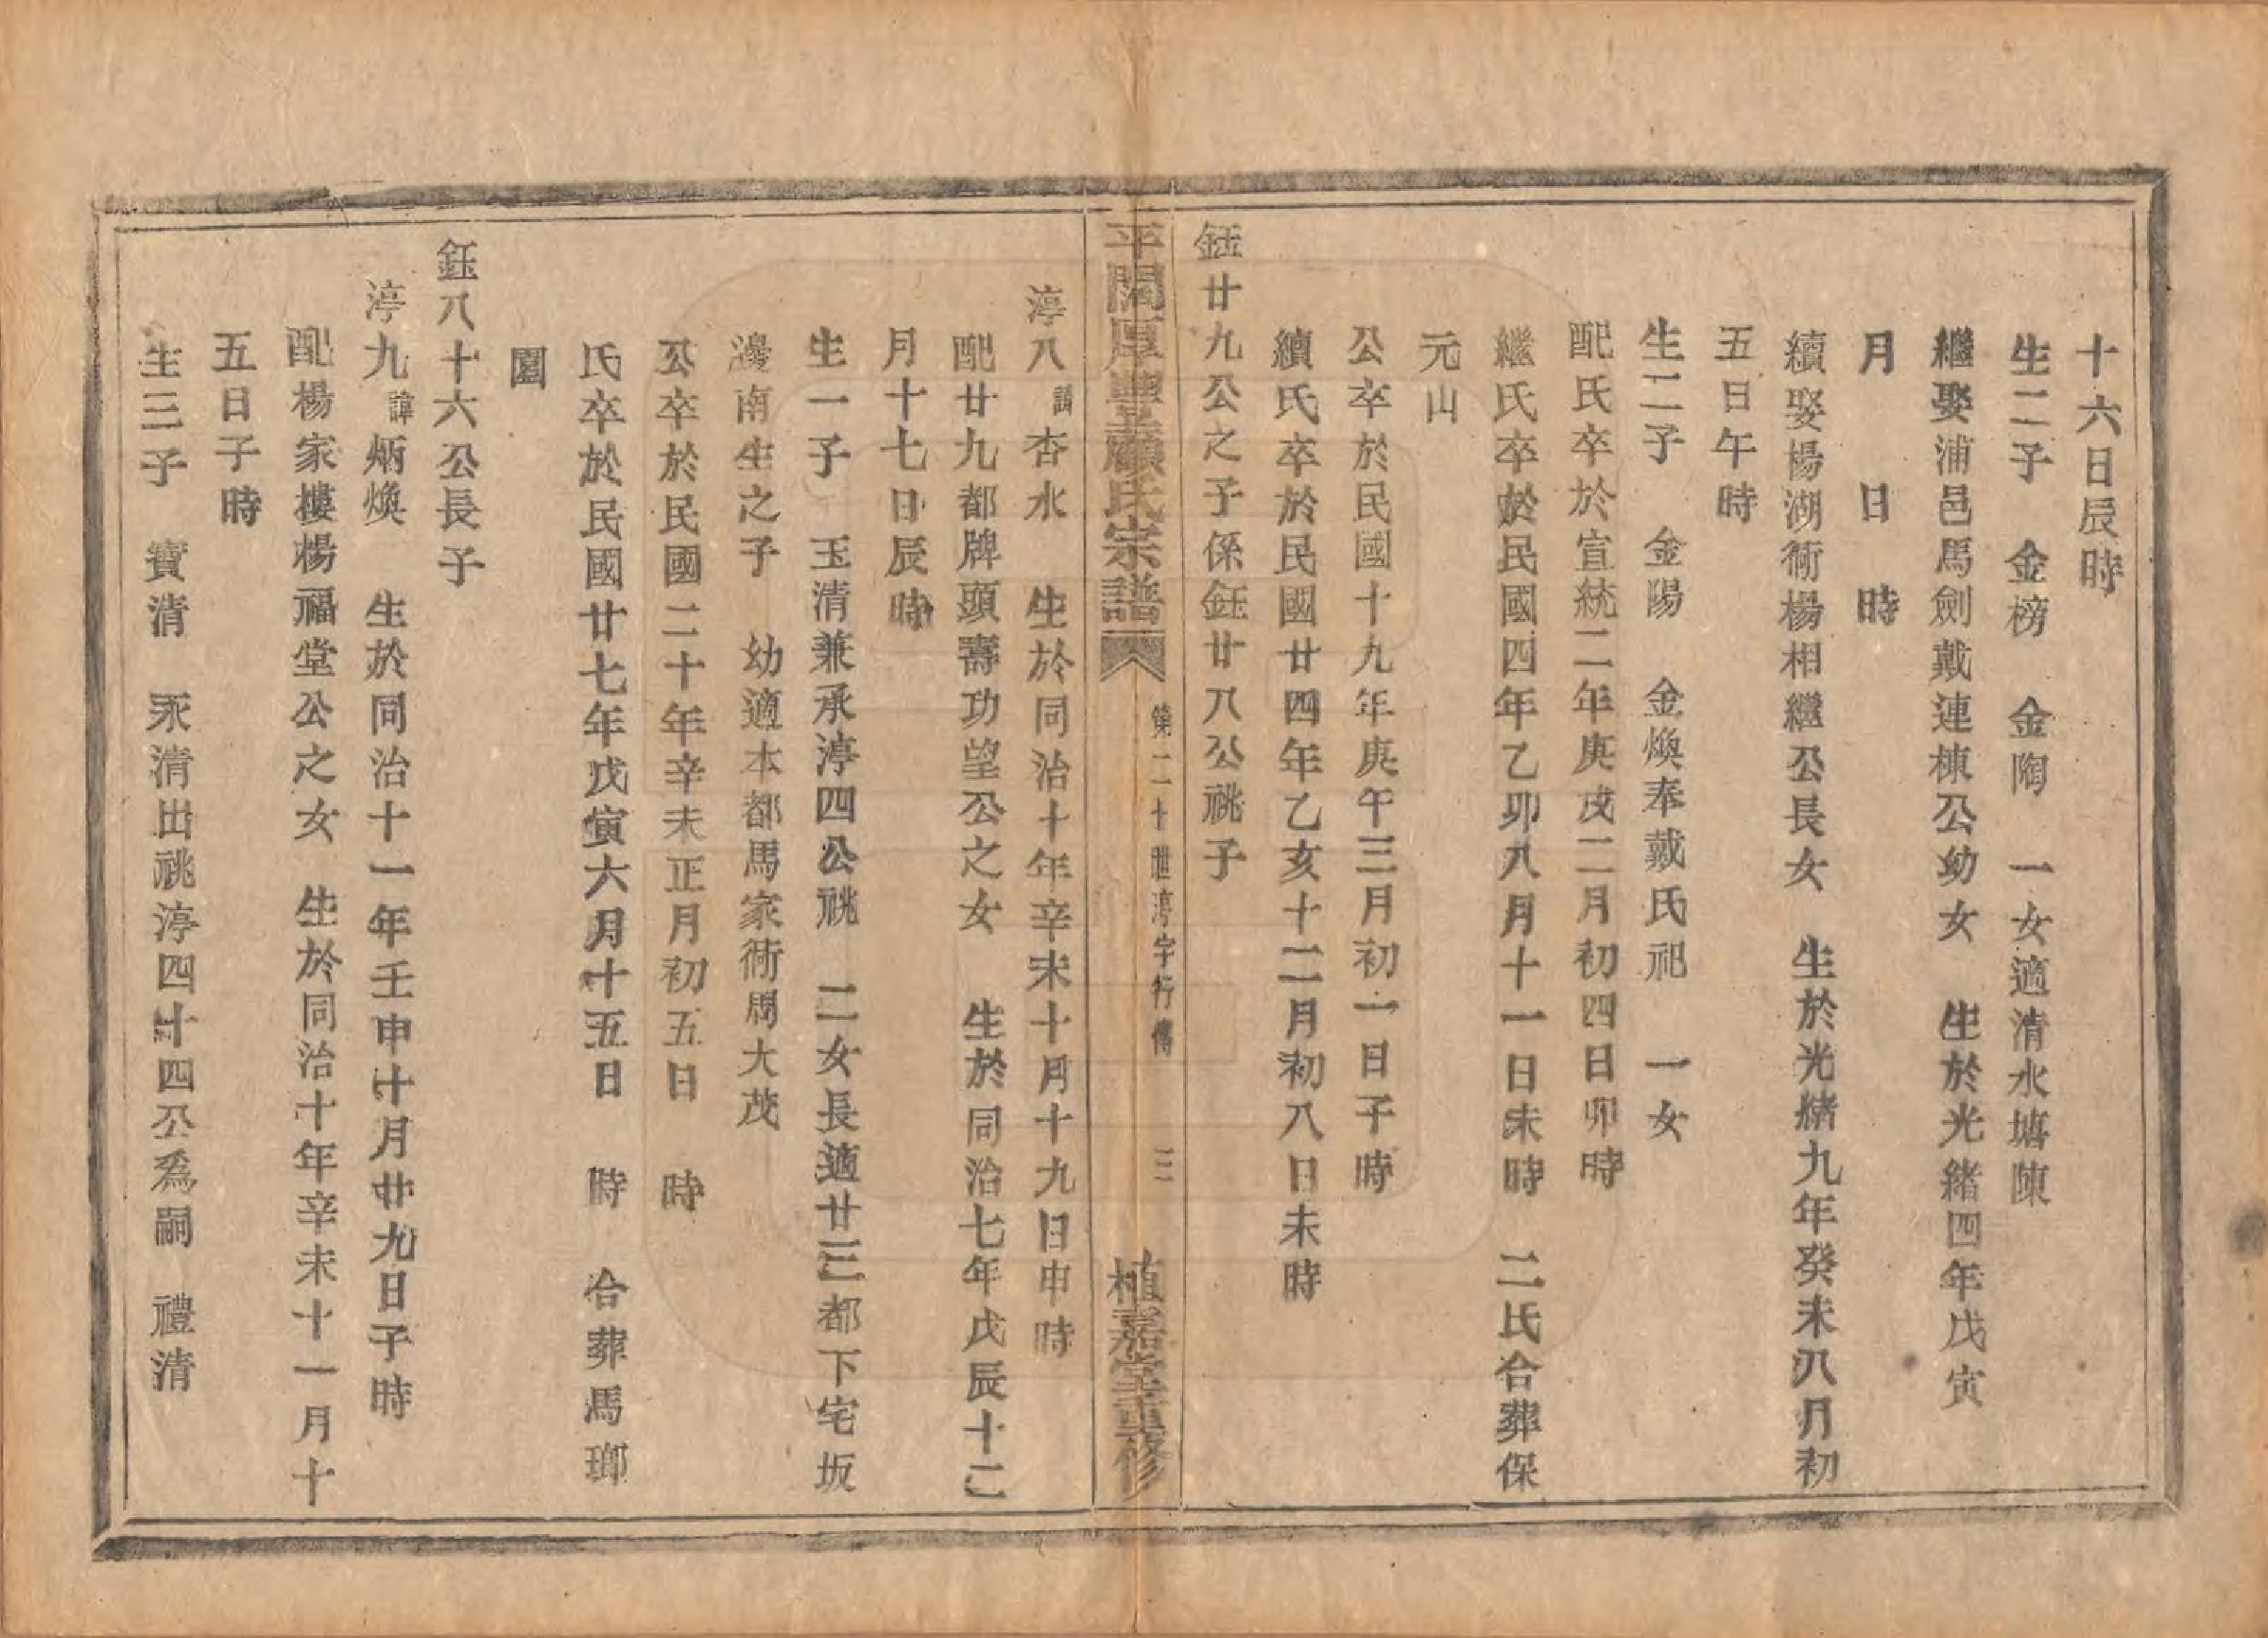 十六日辰時
生二子　金榜　金陶　一女適清水塘陳
繼娶浦邑馬劍戴連棟公幼女　生於光緒四年戊寅
月　日　時
續娶楊湖衕楊相繼公長女　生於光緒九年癸未八月初
五日午時
生二子　金陽　金煥奉戴氏祀　一女
配氏卒於宣統二年庚戌二月初四日卯時
繼氏卒於民國四年乙卯八月十一日未時　二氏合葬保
元山
公卒於民國十九年庚午三月初一日子時
續氏卒於民國廿四年乙亥十二月初八日未時
鈺廿九公之子係鈺廿八公祧子
平闊厚豐顧氏宗譜　第二十世渟字行傳　三　植嘉堂重修
渟八　諱杏水　生於同治十年辛未十月十九日申時
配廿九都牌頭壽功望公之女　生於同治七年戊辰十二
月十七日辰時
生一子　玉清兼承渟四公祧　二女長適廿三都下宅坂
邊南生之子　幼適本都馬家衕周大茂
公卒於民國二十年辛未正月初五日　時
氏卒於民國廿七年戊寅六月十五日　時　合葬馬瑯
園
鈺八十六公長子
渟九　諱炳煥　生於同治十一年壬申十月廿九日子時
配楊家樓楊福堂公之女　生於同治十年辛未十一月十
五日子時
生三子　寶清　永清出祧渟四十四公為嗣　禮清